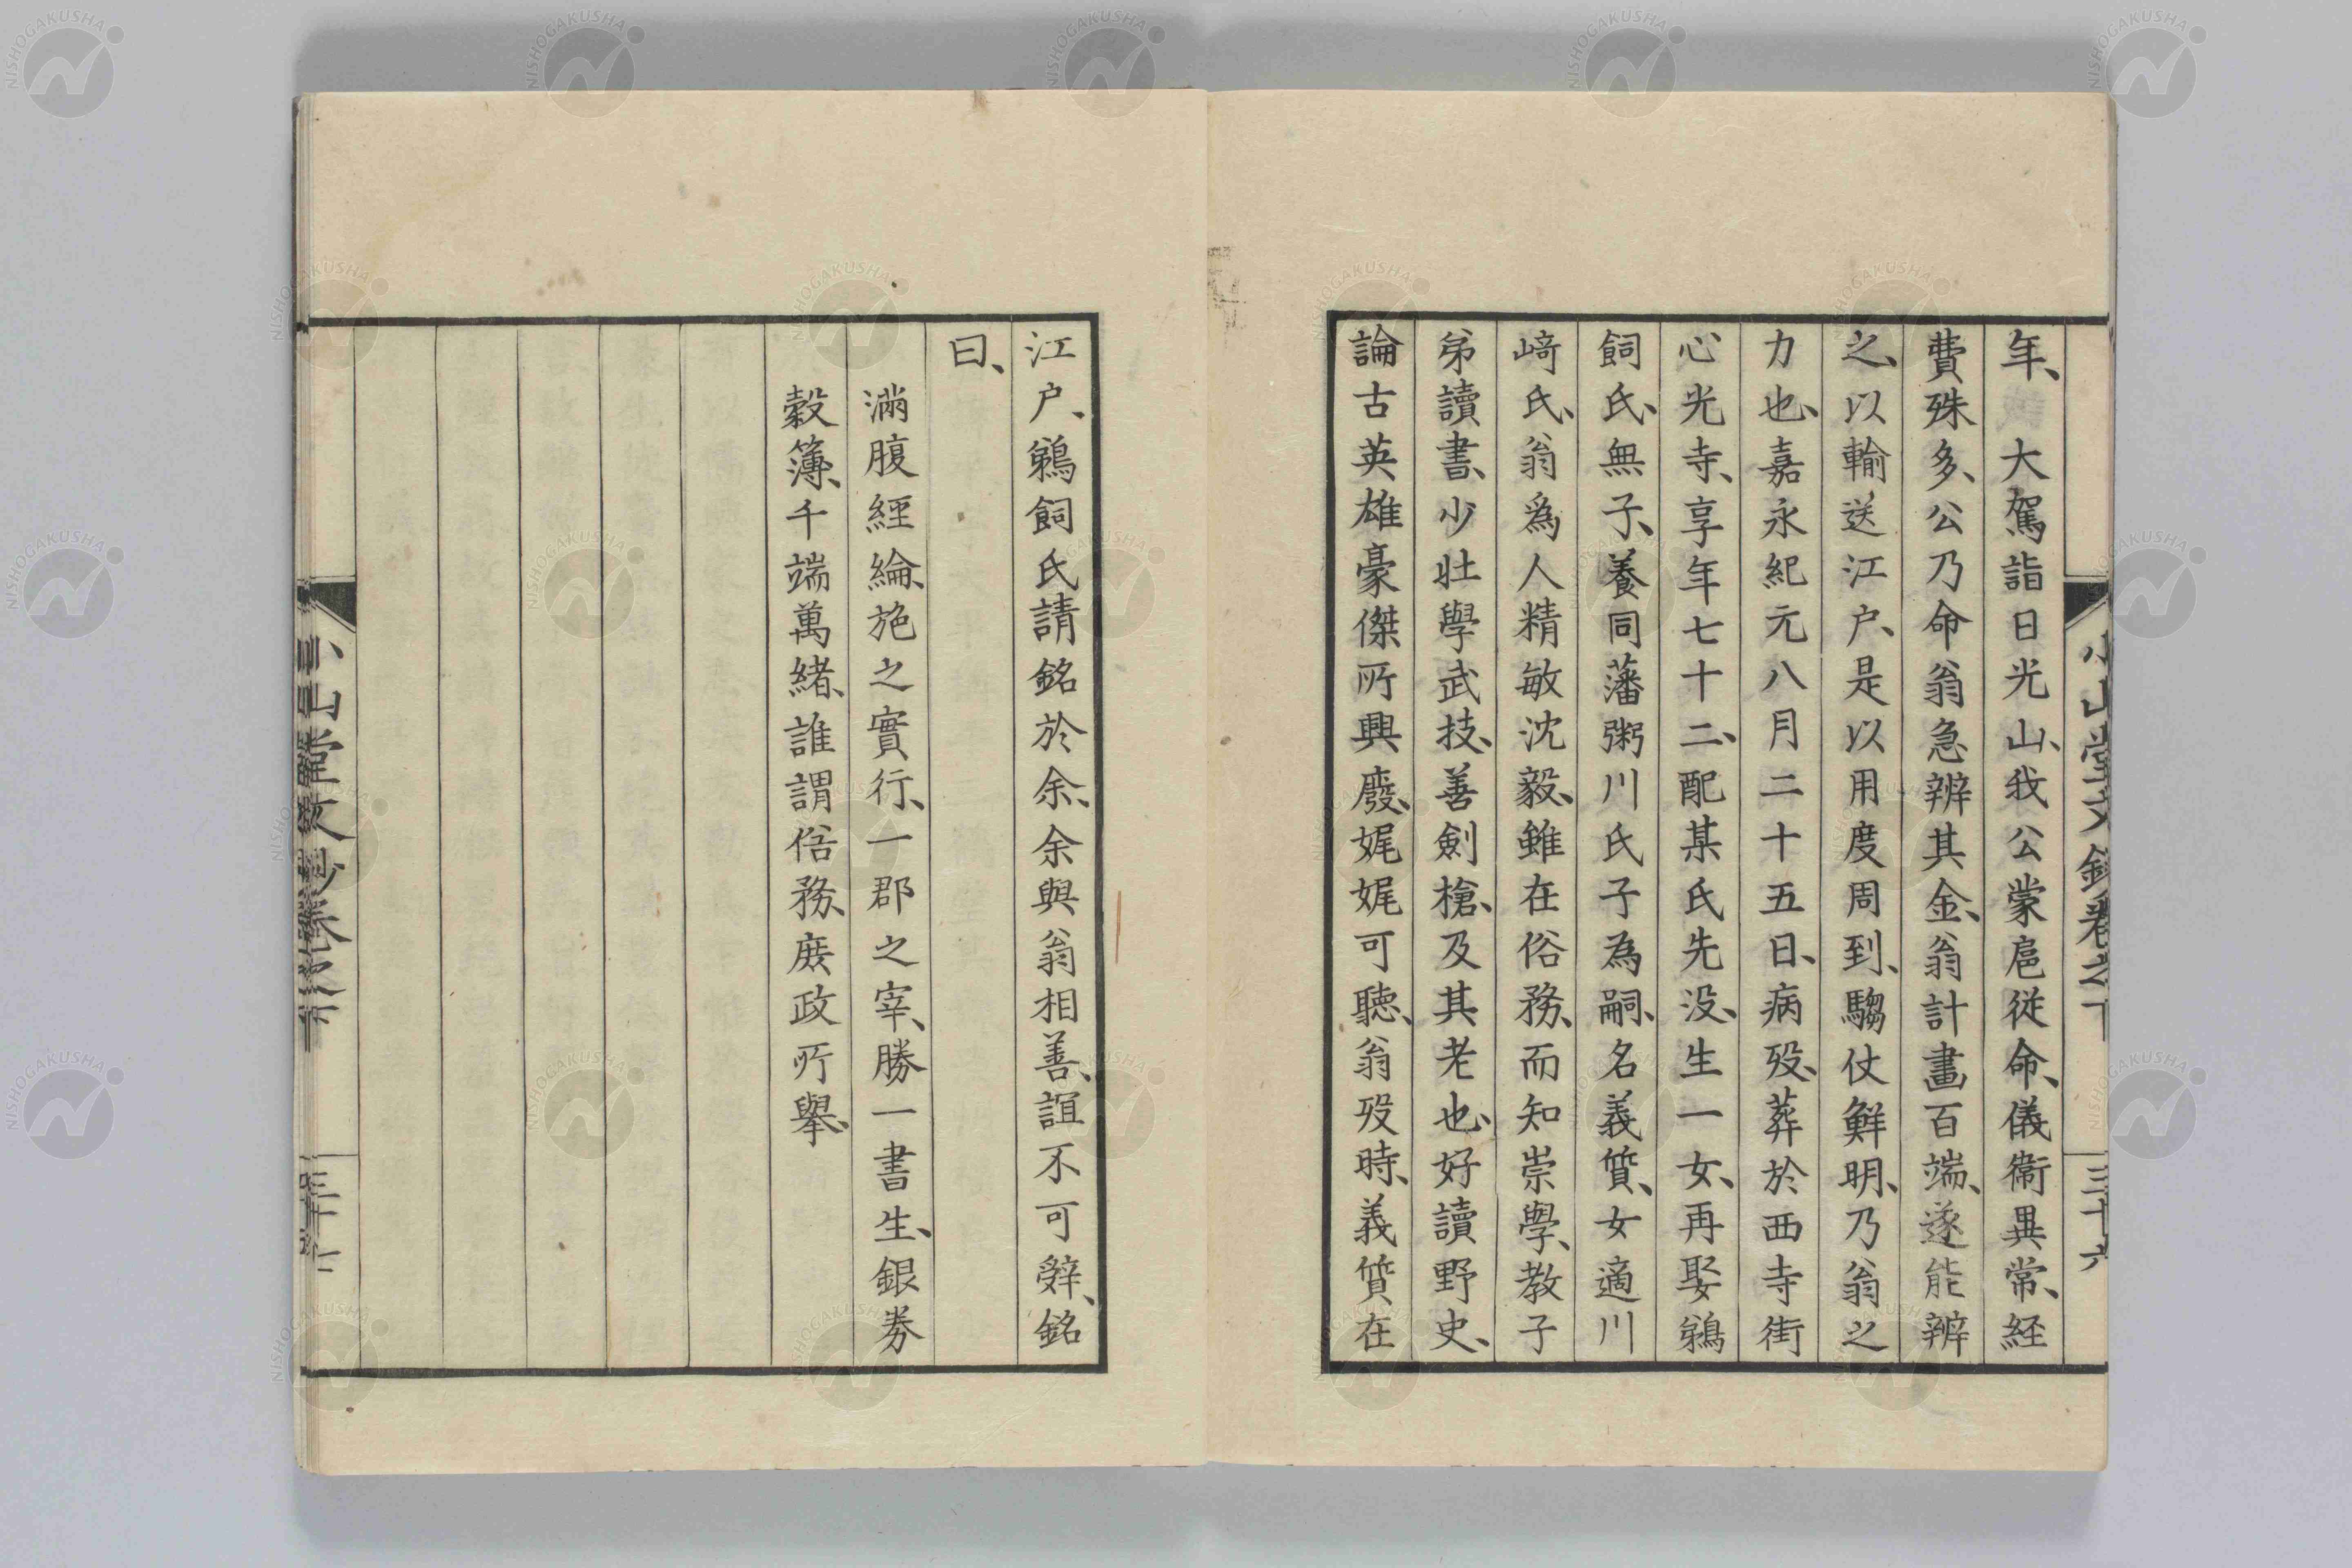 年、　大駕詣日光山、我公蒙扈從命、儀衞異常、経
費殊多、公乃命翁急辨其金、翁計畫百端、遂能辨
之、以輸送江户、是以用度周到、騶仗鮮明、乃翁之
力也、嘉永紀元八月二十五日、病歿、葬於西寺街
心光寺、享年七十二、配某氏先没、生一女、再娶鵜
飼氏、無子、養同藩粥川氏子為嗣、名義質、女適川
﨑氏、翁爲人精敏沈毅、雖在俗務、而知崇學、教子
弟讀書、少壯學武技、善劍槍、及其老也、好讀野史、
論古英雄豪傑所興廢、娓娓可聽、翁歿時、義質在
小山堂文鈔卷之下
三十六
江户、鵜飼氏請銘於余、余與翁相善、誼不可辤、銘
曰、
滿腹經綸、施之實行、一郡之宰、勝一書生、銀劵
穀簿、千端萬緒、誰謂俗務、庶政所擧、
小山堂文鈔卷之下
三十七
NISHOGAKUSHA